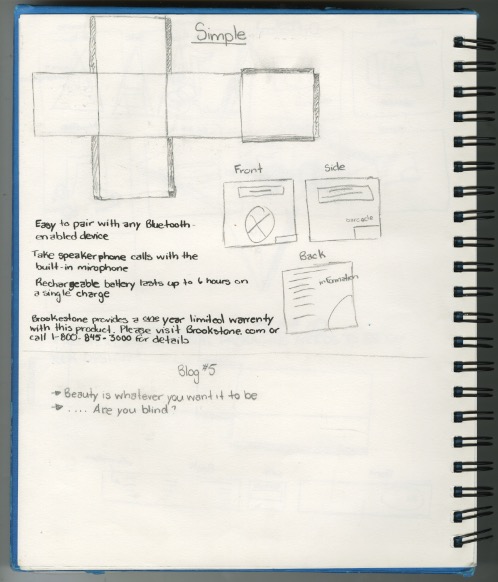 Simple
Front
Side
barcode
Easy to pair with any Bluetooth-
enabled device
Take speakerphone calls with the
built-in mirophone
Rechargeable battery lasts up to 6 hours on
a single charge
Back
information
Brookestone provides a one year limited warrenty
with this product. Please visit Brookstone.com or
call 1-800-845-3000 for details
Blog #5
Beauty is whatever you want it to be
.... Are you blind?